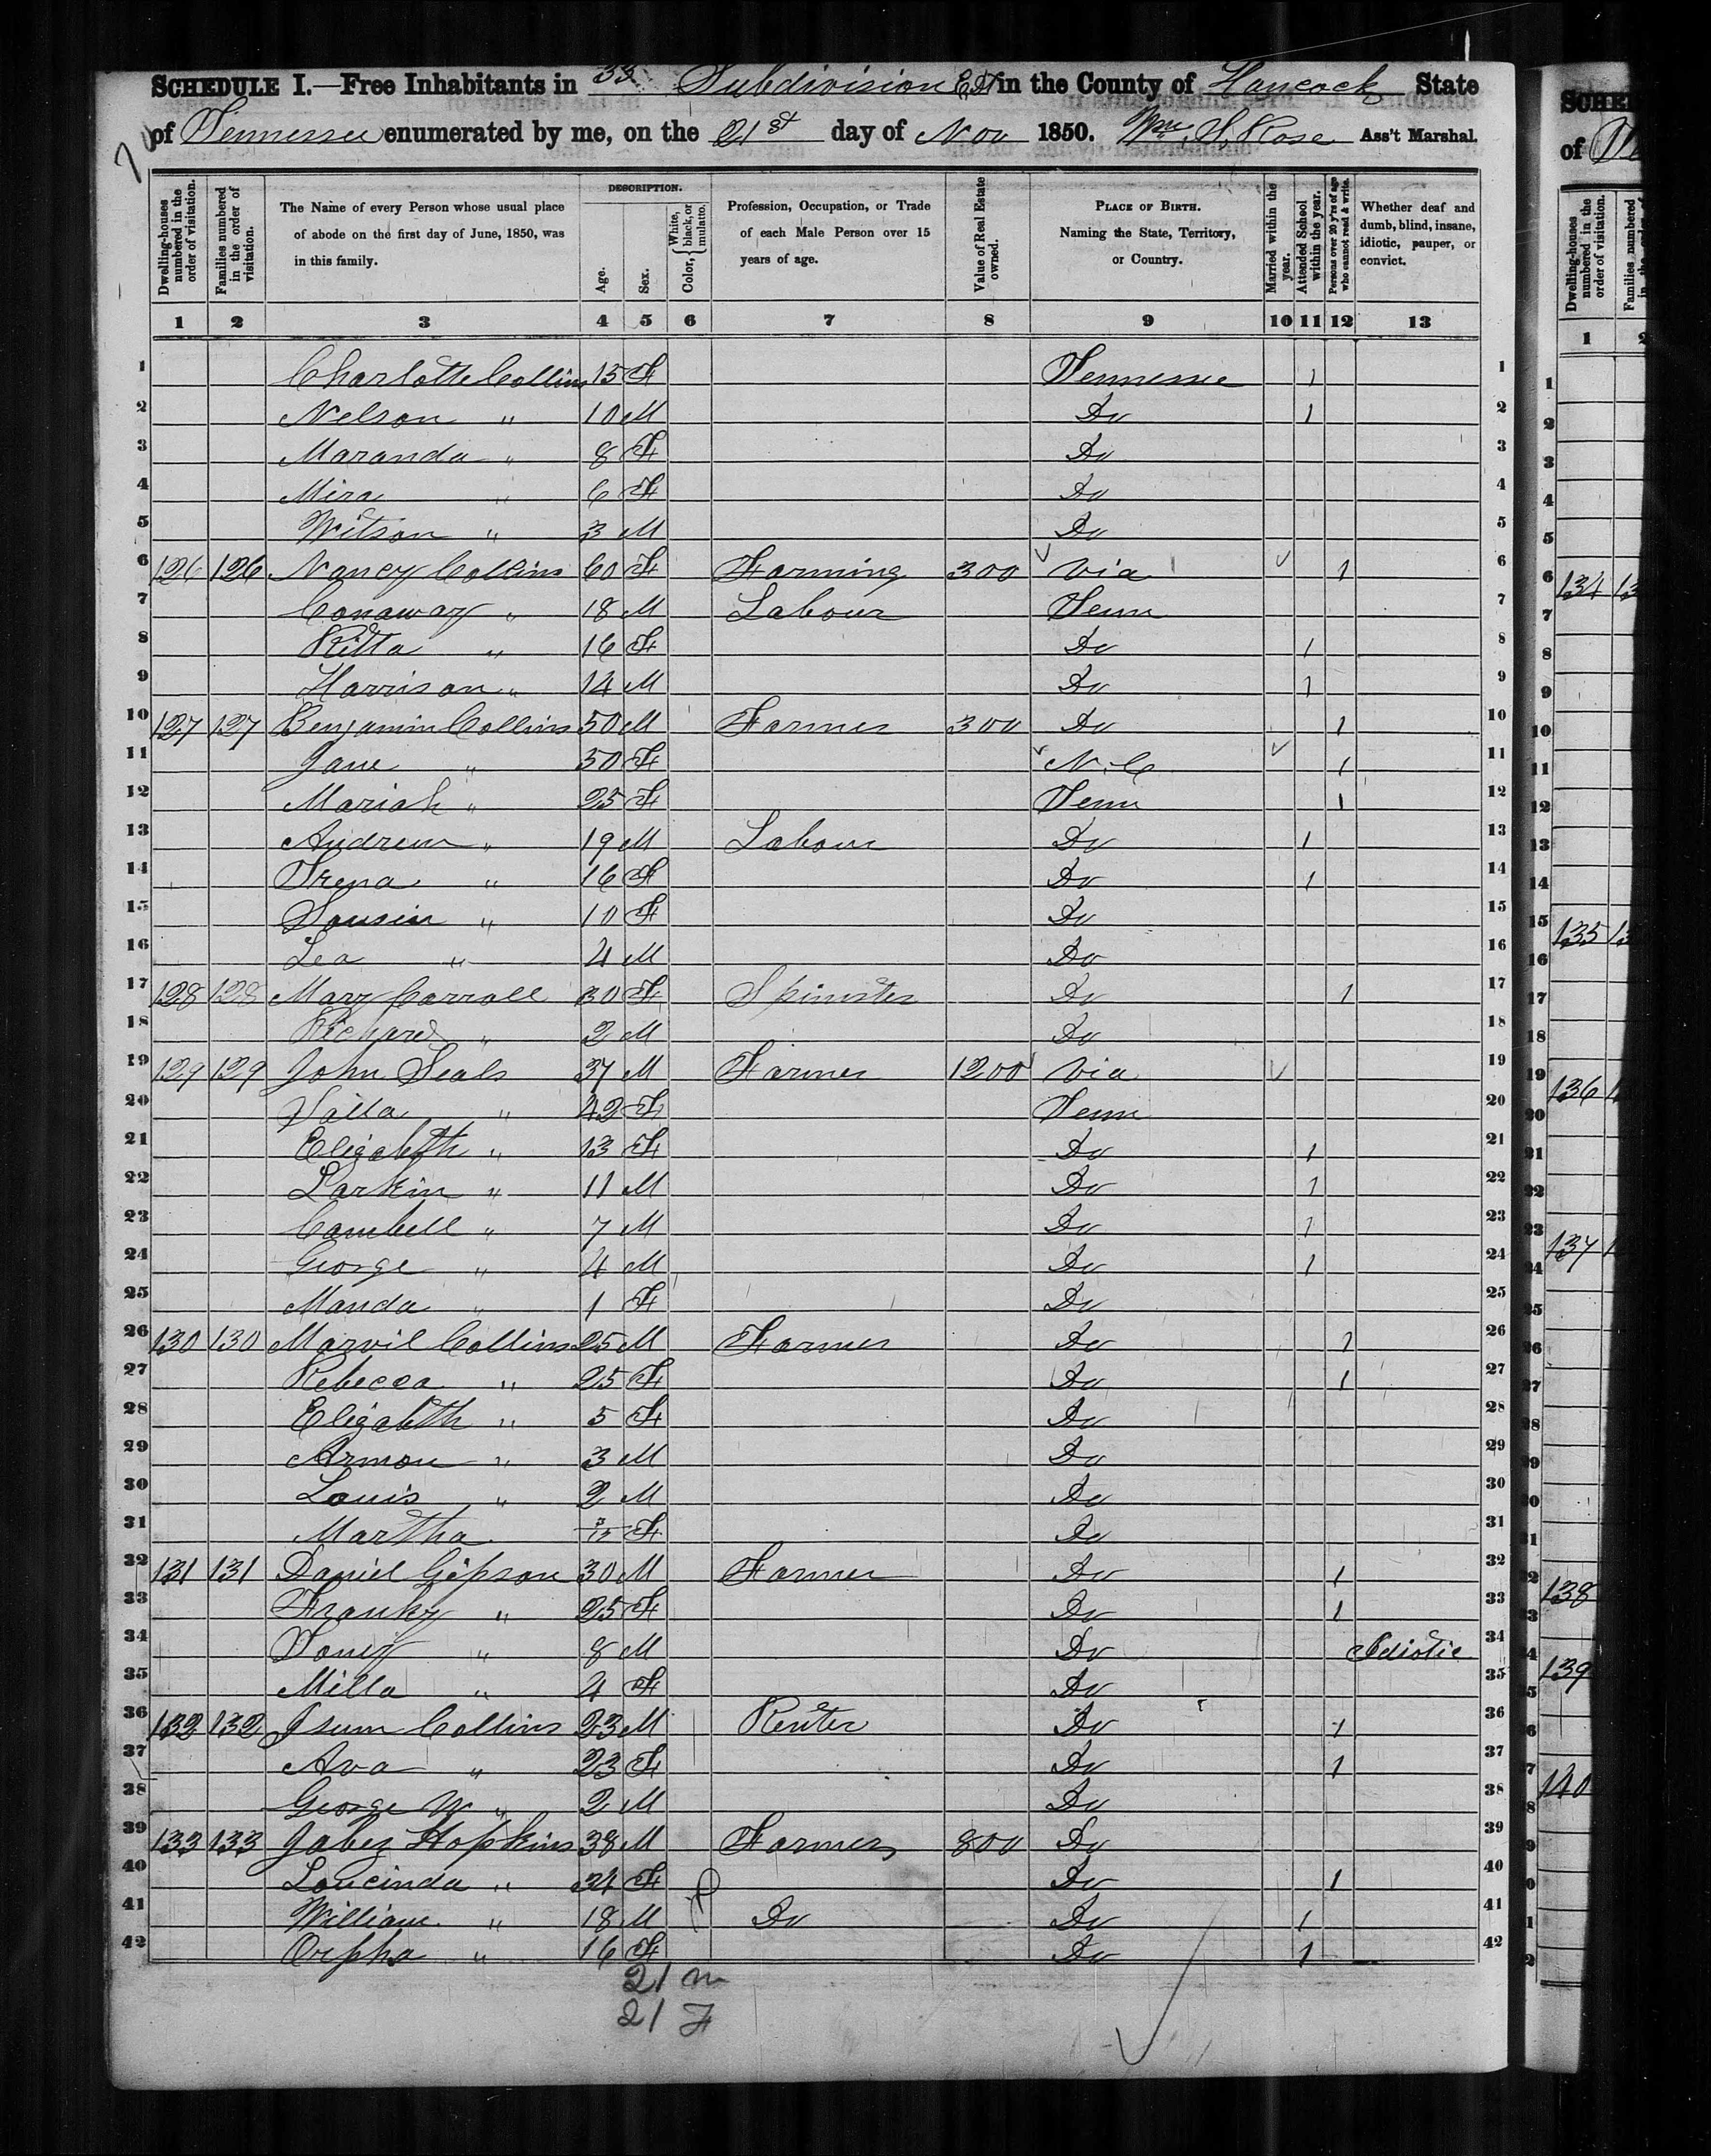 SCHEDULE I.—Free Inhabitants in 33 Subdivision E.D in the County of Hancock State
of Tennessee enumerated by me, on the 21st day of Nov 1850. Wm S. Rose Ass't Marshal.
Dwelling-houses numbered in the order of visitation.
Families numbered in the order of visitation.
The Name of every Person whose usual place of abode on the first day of June, 1850, was in this family.
DESCRIPTION.
Age.
Sex.
Color, { White, black, or mulatto.
Profession, Occupation, or Trade of each Male Person over 15 years of age.
Value of Real Estate owned.
PLACE OF BIRTH. Naming the State, Territory, or Country.
Married within the year.
Attended School within the year.
Persons over 20 y'rs of age who cannot read & write.
Whether deaf and dumb, blind, insane, idiotic, pauper, or convict.
1 2 3 4 5 6 7 8 9 10 11 12 13
1 Charlotte Collins 15 F Tennessee 1 1
2 Nelson " 10 M Do 1 2
3 Maranda " 8 F Do 3
4 Mira " 6 F Do 4
5 Wilson " 3 M Do 5
6 126 126 Nancy Collins 60 F Farming 300 Via 1 6
7 Conaway " 18 M Labour Tenn 7
8 Kitta " 16 F Do 1 8
9 Harrison " 14 M Do 1 9
10 127 127 Benjamin Collins 50 M Farmer 300 Do 1 10
11 Jane " 50 F N.C 1 11
12 Mariah " 25 F Tenn 1 12
13 Andrew " 19 M Labour Do 1 13
14 Irena " 16 F Do 1 14
15 Sousin " 10 F Do 15
16 Lea " 4 M Do 16
17 128 128 Mary Carroll 30 F Spinister Do 1 17
18 Richard " 2 M Do 18
19 129 129 John Seals 37 M Farmer 1200 Via 19
20 " 42 F Tenn 20
21 Elizabeth " 13 F Do 1 21
22 Larkin " 11 M Do 1 22
23 Cambell " 7 M Do 1 23
24 George " 4 M Do 1 24
25 Manda " 1 F Do 25
26 130 130 Marvil Collins 25 M Farmer Do 1 26
27 Rebecca " 25 F Do 1 27
28 Elizabeth " 5 F Do 28
29 Armon " 3 M Do 29
30 Louis " 2 M Do 30
31 Martha F Do 31
32 131 131 Daniel Gipson 30 M Farmer Do 1 32
33 Franky " 25 F Do 1 33
34 " 8 M Do Idiotic 34
35 Milla " 4 F Do 35
36 132 132 Isum Collins 23 M Renter Do 1 36
37 Ava " 23 F Do 1 37
38 George W " 2 M Do 38
39 133 133 Jabez Hopkins 38 M Farmer 800 Do 39
40 Loucinda " 34 F Do 1 40
41 William " 18 M Do Do 1 41
42 Orpha " 16 F Do 1 42
21 m
21 F
SCHE
of
Dwelling-houses numbered in the order of visitation.
Families numbered
1
134
135
136
137
138
139
140